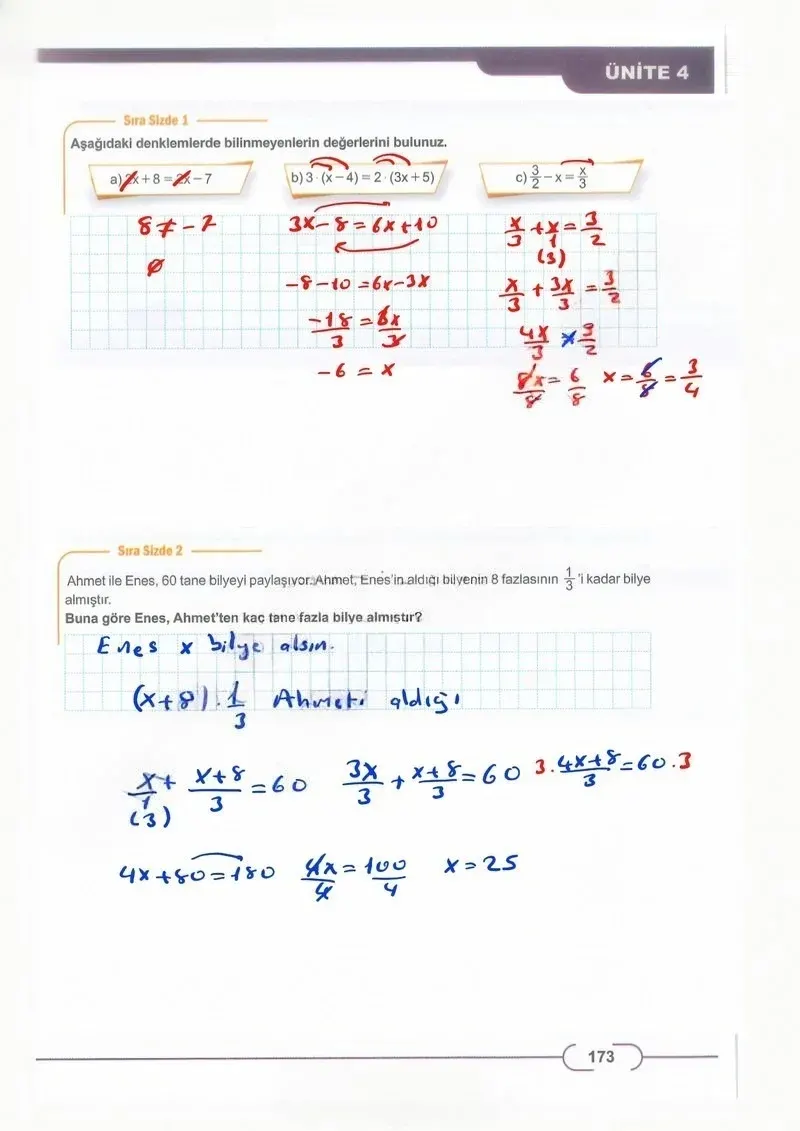 ÜNİTE 4
Sıra Sizde 1
Aşağıdaki denklemlerde bilinmeyenlerin değerlerini bulunuz.
a) 2x + 8 = 2x – 7
b) 3 · (x – 4) = 2 · (3x + 5)
c) 3/2 – x = x/3
8 ≠ - 7
∅
3x - 8 = 6x + 10
-8 - 10 = 6x - 3x
-18/3 = 3x/3
-6 = x
x/3 + x/1 = 3/2
(3)
x/3 + 3x/3 = 3/2
4x/3 × 3/2
8x/8 = 6/8 x = 6/8 = 3/4
Sıra Sizde 2
Ahmet ile Enes, 60 tane bilyeyi paylaşıyor. Ahmet, Enes'in aldığı bilyenin 8 fazlasının 1/3 'i kadar bilye
almıştır.
Buna göre Enes, Ahmet'ten kaç tane fazla bilye almıştır?
Enes x bilye alsın.
(x+8) . 1/3 Ahmeti aldığı
x/1 + x+8/3 = 60 3x/3 + x+8/3 = 60 3. 4x+8/3 = 60 .3
(3)
4x + 80 = 180 4x/4 = 100/4 x = 25
173